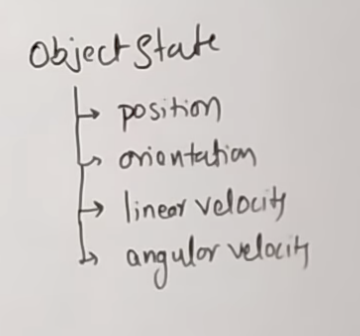 Object State
position
orientation
linear velocity
angular velocity